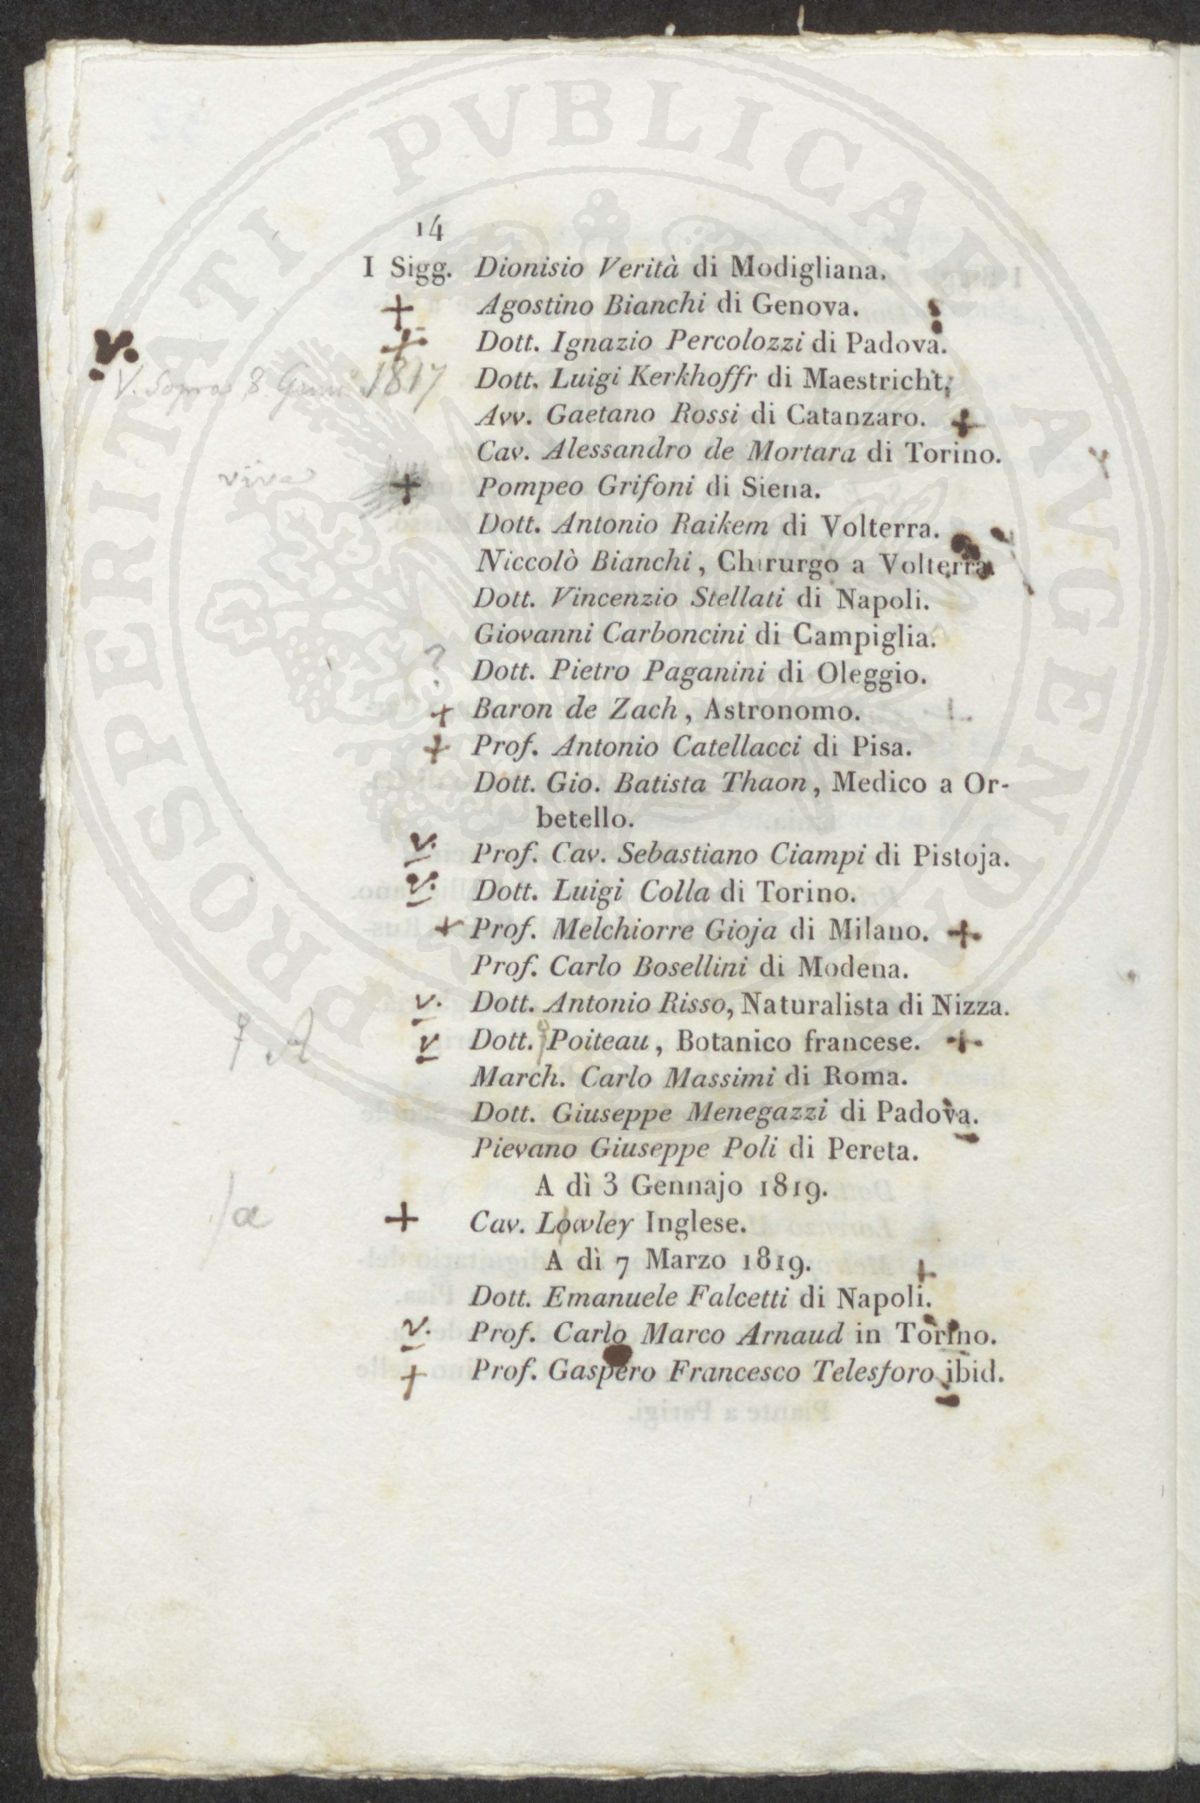 14
I Sigg. Dionisio Verità di Modigliana.
+ Agostino Bianchi di Genova.
+ Dott. Ignazio Percolozzi di Padova.
v. Dott. Luigi Kerkhoffr di Maestricht.
V. Sopra 8. 1817
Avv. Gaetano Rossi di Catanzaro. +
Cav. Alessandro de Mortara di Torino.
vive + Pompeo Grifoni di Siena.
Dott. Antonio Raikem di Volterra.
Niccolò Bianchi, Chirurgo a Volterra.
Dott. Vincenzio Stellati di Napoli.
Giovanni Carboncini di Campiglia.
? Dott. Pietro Paganini di Oleggio.
+ Baron de Zach, Astronomo.
+ Prof. Antonio Catellacci di Pisa.
Dott. Gio. Batista Thaon, Medico a Or-
betello.
v. Prof. Cav. Sebastiano Ciampi di Pistoja.
v. Dott. Luigi Colla di Torino.
+ Prof. Melchiorre Gioja di Milano. +
Prof. Carlo Bosellini di Modena.
v. Dott. Antonio Risso, Naturalista di Nizza.
v Dott. Poiteau, Botanico francese. +
March. Carlo Massimi di Roma.
Dott. Giuseppe Menegazzi di Padova.
Pievano Giuseppe Poli di Pereta.
A dì 3 Gennajo 1819.
+ Cav. Lowley Inglese.
A dì 7 Marzo 1819.
Dott. Emanuele Falcetti di Napoli. +
v. Prof. Carlo Marco Arnaud in Torino.
+ Prof. Gaspero Francesco Telesforo ibid.
PROSPERITATI PVBLICAE AVGENDAE